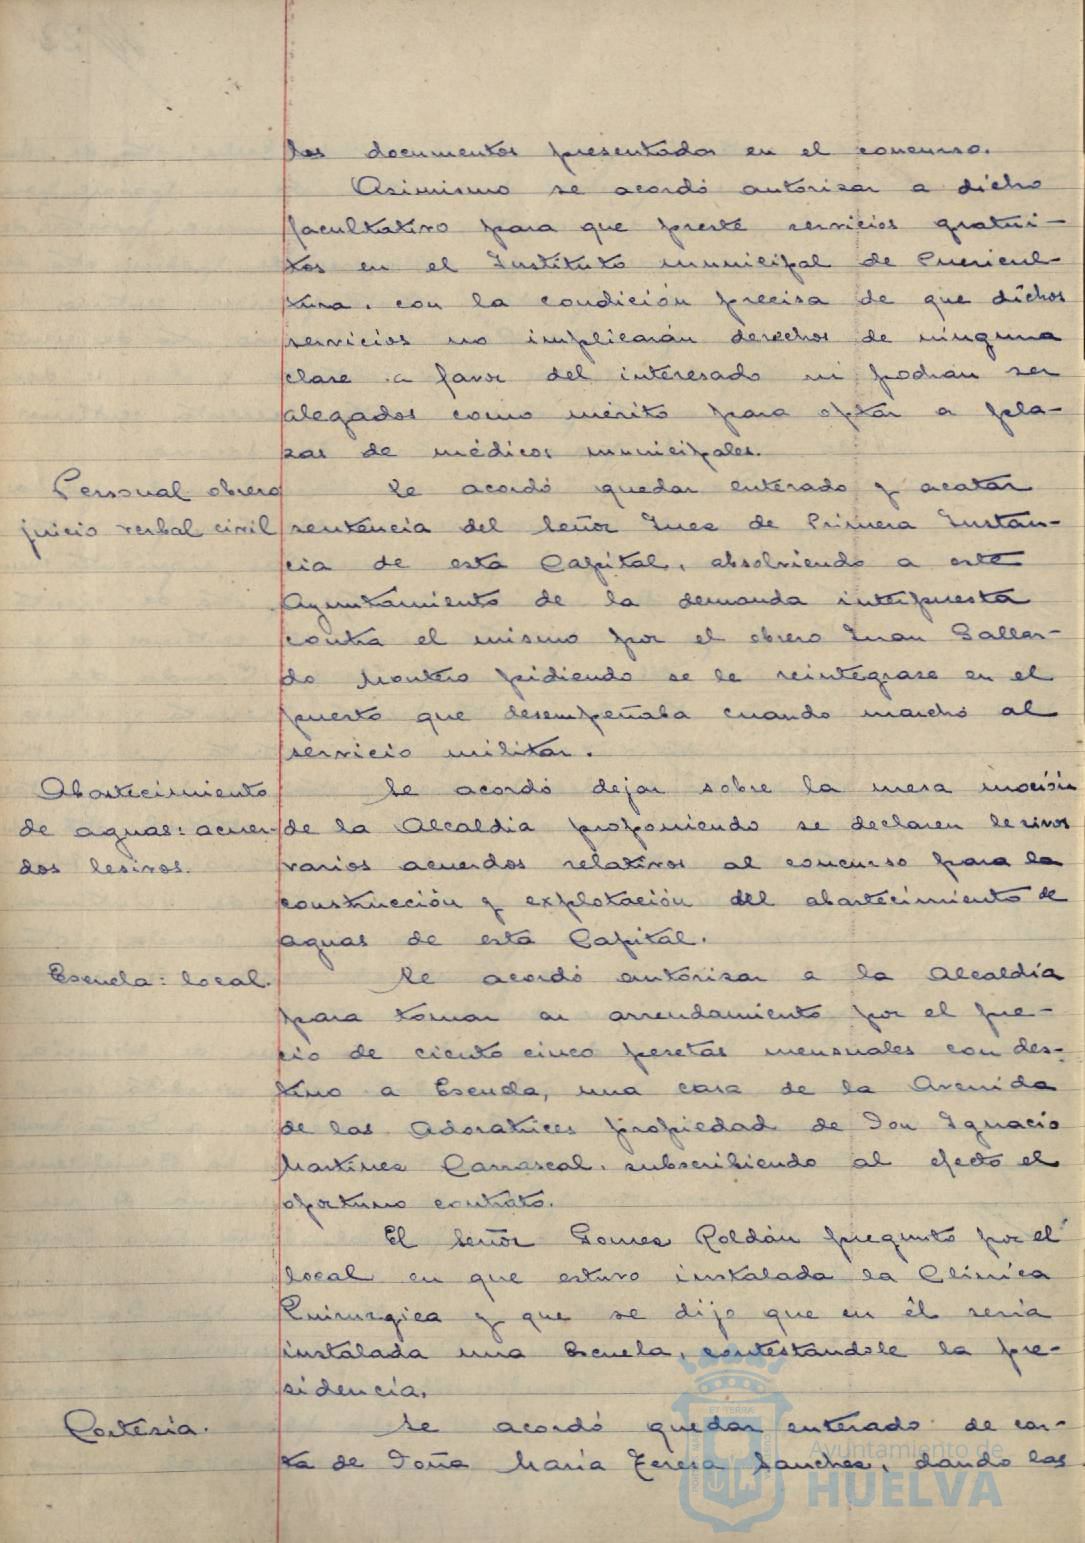 los documentos presentados en el concurso.
Asimismo se acordó autorizar a dicho
facultativo para que preste servicios gratui-
tos en el Instituto municipal de Puericul-
tura, con la condición precisa de que dichos
servicios no implicarán derechos de ninguna
clase a favor del interesado ni podrán ser
alegados como mérito para optar a pla-
zas de médicos municipales.
Personal obrero
juicio verbal civil
Se acordó quedar enterado y acatar
sentencia del Señor Juez de Primera Instan-
cia de esta Capital, absolviendo a este
Ayuntamiento de la demanda interpuesta
contra el mismo por el obrero Juan Gallar-
do Montero pidiendo se le reintegrase en el
puesto que desempeñaba cuando marchó al
servicio militar.
Abastecimiento
de aguas: acuer-
dos lesivos.
Se acordó dejar sobre la mesa moción
de la Alcaldía proponiendo se declaren lesivos
varios acuerdos relativos al concurso para la
construcción y explotación del abastecimiento de
aguas de esta Capital.
Escuela: local.
Se acordó autorizar a la Alcaldía
para tomar en arrendamiento por el pre-
cio de ciento cinco pesetas mensuales con des-
tino a Escuela, una casa de la Avenida
de las Adoratrices propiedad de Don Ignacio
Martínez Carrascal, subscribiendo al efecto el
oportuno contrato.
El Señor Gomez Roldán preguntó por el
local en que estuvo instalada la Clínica
Quirurgica y que se dijo que en él sería
instalada una Escuela, contestándole la pre-
sidencia.
Cortesía.
Se acordó quedar enterado de car-
ta de Doña María Teresa Sanchez, dando las
Ayuntamiento de
HUELVA